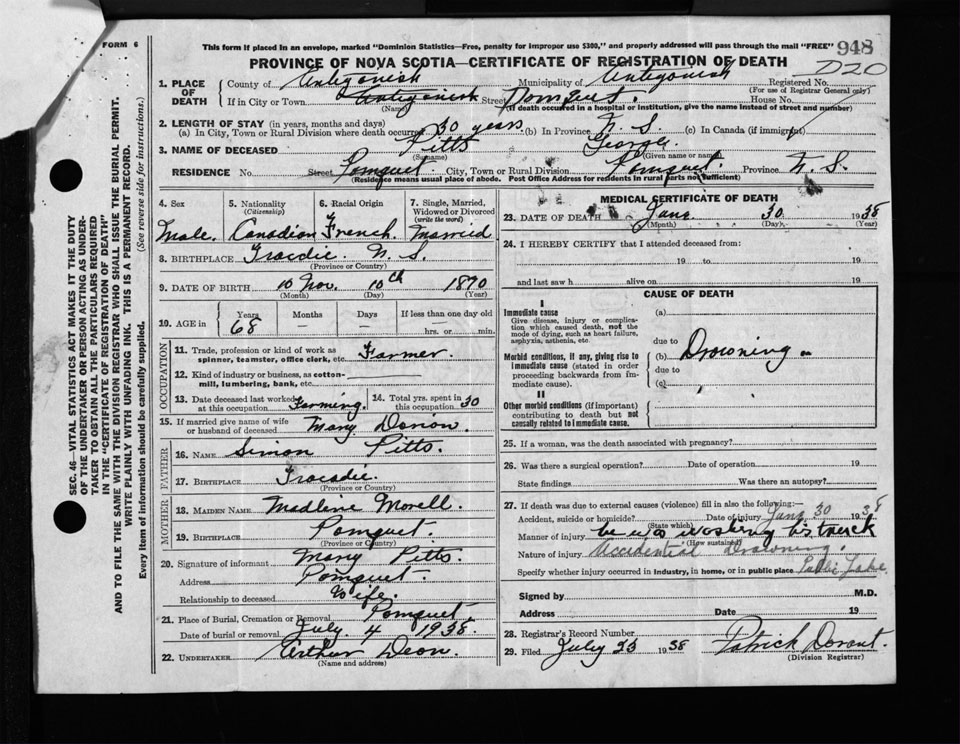 FORM 6
This form if placed in an envelope, marked "Dominion Statistics—Free, penalty for improper use $300," and properly addressed will pass through the mail "FREE"
948
PROVINCE OF NOVA SCOTIA—CERTIFICATE OF REGISTRATION OF DEATH
D20
1. PLACE OF DEATH
County of Antigonish Municipality of Antigonish Registered No.
(For use of Registrar General only)
If in City or Town Antigonish Street Pomquet. House No.
(Name) (If death occurred in a hospital or institution, give the name instead of street and number)
2. LENGTH OF STAY (in years, months and days)
(a) In City, Town or Rural Division where death occurred 30 years (b) In Province N. S. (c) In Canada (if immigrant)
3. NAME OF DECEASED Pitts George.
(Surname) (Given name or names)
RESIDENCE No. Street Pomquet. City, Town or Rural Division Pomquet. Province N. S.
(Residence means usual place of abode. Post Office Address for residents in rural parts not sufficient)
4. Sex
Male.
5. Nationality
(Citizenship)
Canadian
6. Racial Origin
French.
7. Single, Married, Widowed or Divorced
(write the word)
Married
8. BIRTHPLACE Tracdie. N. S.
(Province or Country)
9. DATE OF BIRTH 10 Nov. 10th 1870
(Month) (Day) (Year)
10. AGE in
Years Months Days If less than one day old
68 — — hrs. or min.
OCCUPATION
11. Trade, profession or kind of work as spinner, teamster, office clerk, etc. Farmer.
12. Kind of industry or business, as cotton-mill, lumbering, bank, etc.
13. Date deceased last worked at this occupation Farming.
14. Total yrs. spent in this occupation 30
15. If married give name of wife or husband of deceased Mary
FATHER
16. NAME Simon Pitts.
17. BIRTHPLACE Tracadie.
(Province or Country)
MOTHER
18. MAIDEN NAME Madline Morell.
19. BIRTHPLACE Pomquet.
(Province or Country)
20. Signature of informant Mary Pitts
Address Pomquet.
Relationship to deceased Wife.
21. Place of Burial, Cremation or Removal Pomquet
Date of burial or removal July. 4 1938.
22. UNDERTAKER Arthur Deon.
(Name and address)
MEDICAL CERTIFICATE OF DEATH
23. DATE OF DEATH June 30 1938
(Month) (Day) (Year)
24. I HEREBY CERTIFY that I attended deceased from:
19 to 19
and last saw h alive on 19
CAUSE OF DEATH
I
Immediate cause
Give disease, injury or complication which caused death, not the mode of dying, such as heart failure, asphyxia, asthenia, etc.
Morbid conditions, if any, giving rise to immediate cause (stated in order proceeding backwards from immediate cause).
II
Other morbid conditions (if important) contributing to death but not causally related to immediate cause.
(a)
due to
(b) Drowning
due to
(c)
25. If a woman, was the death associated with pregnancy?
26. Was there a surgical operation? Date of operation 19
State findings Was there an autopsy?
27. If death was due to external causes (violence) fill in also the following:—
Accident, suicide or homicide? Date of injury June 30 1938
(State which)
Manner of injury he was washing his truck
(How sustained)
Nature of injury Accidential Drowning.
Specify whether injury occurred in industry, in home, or in public place Public Lake
Signed by M.D.
Address Date 19
28. Registrar's Record Number
29. Filed July 23 1938 Patrick
(Division Registrar)
SEC. 46—VITAL STATISTICS ACT MAKES IT THE DUTY OF THE UNDERTAKER OR PERSON ACTING AS UNDERTAKER TO OBTAIN ALL THE PARTICULARS REQUIRED IN THE "CERTIFICATE OF REGISTRATION OF DEATH" AND TO FILE THE SAME WITH THE DIVISION REGISTRAR WHO SHALL ISSUE THE BURIAL PERMIT.
WRITE PLAINLY WITH UNFADING INK. THIS IS A PERMANENT RECORD.
Every item of information should be carefully supplied. (See reverse side for instructions.)